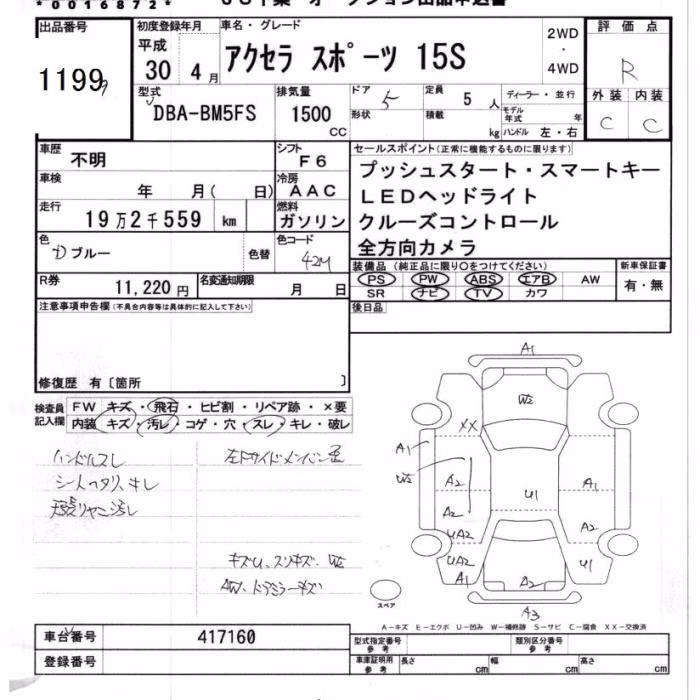 *0016872*
出品番号
1199
初度登録年月
平成
30 4月
車名・グレード
アクセラ スポーツ 15S
2WD
・
4WD
評価点
R
外装 内装
C C
型式
DBA-BM5FS
排気量
1500
CC
ドア
5
形状
定員
5 人
積載
kg
ディーラー・並行
モデル年式 年
ハンドル 左・右
車歴
不明
シフト
F6
車検
年 月( 日)
冷房
AAC
走行
19万2千559 km
燃料
ガソリン
色
D ブルー
色替
色コード
42M
R券
11,220円
名変通知期限
月 日
セールスポイント(正常に機能するものに限ります)
プッシュスタート・スマートキー
LEDヘッドライト
クルーズコントロール
全方向カメラ
装備品(純正品に限り○をつけてください)
PS PW ABS エアB AW
SR ナビ TV カワ
新車保証書
有・無
後日品
注意事項申告欄(不具合内容等は具体的に記入して下さい)
修復歴 有〔箇所 〕
検査員
記入欄
FW キズ・飛石・ヒビ割・リペア跡・×要
内装 キズ・汚レ・コゲ・穴・スレ・キレ・破レ
ハンドルスレ
シートヘタリ、キレ
左Fサイドメンバー歪
キズU、スリキズ、W2
AW、ドアミラーキズ
A1
W2
XX
A1
W2
A2
U1
A1
A2
A2
UA2
UA2
U1
A1
A2
A3
スペア
A-キズ E-エクボ U-凹み W-補修跡 S-サビ C-腐食 XX-交換済
車台番号
417160
登録番号
型式指定番号
参考
類別区分番号
参考
車庫証明用
参考
長さ cm
幅 cm
高さ cm